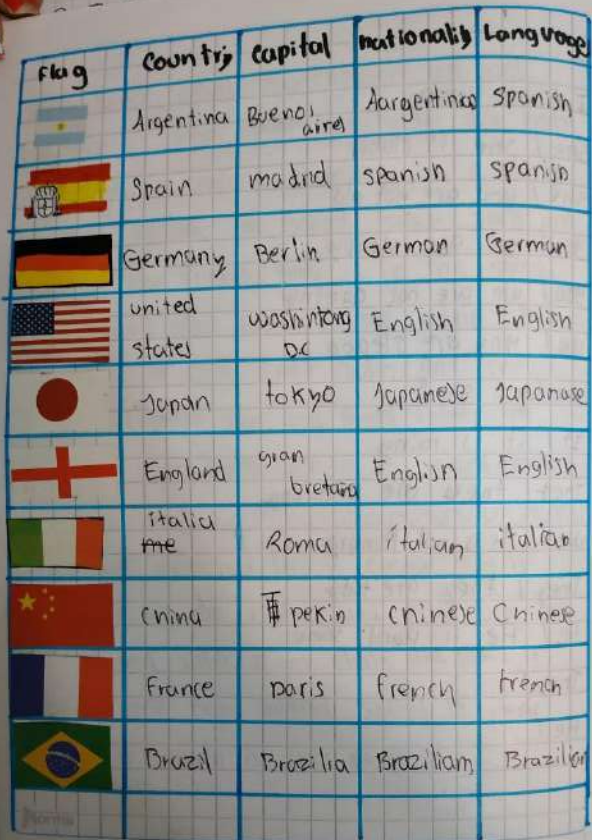 Flag Country Capital nationality Language
Argentina Buenos Aargentinian Spanish
aires
Spain madrid spanish spanish
Germany Berlin German German
united
states washintong English English
D.C
Japan tokyo Japanese Japanase
England gran English English
bretaña
italia
me Roma italian italian
China pekin chinese Chinese
France paris french french
Brazil Brazilia Braziliam Brazilian
Norma